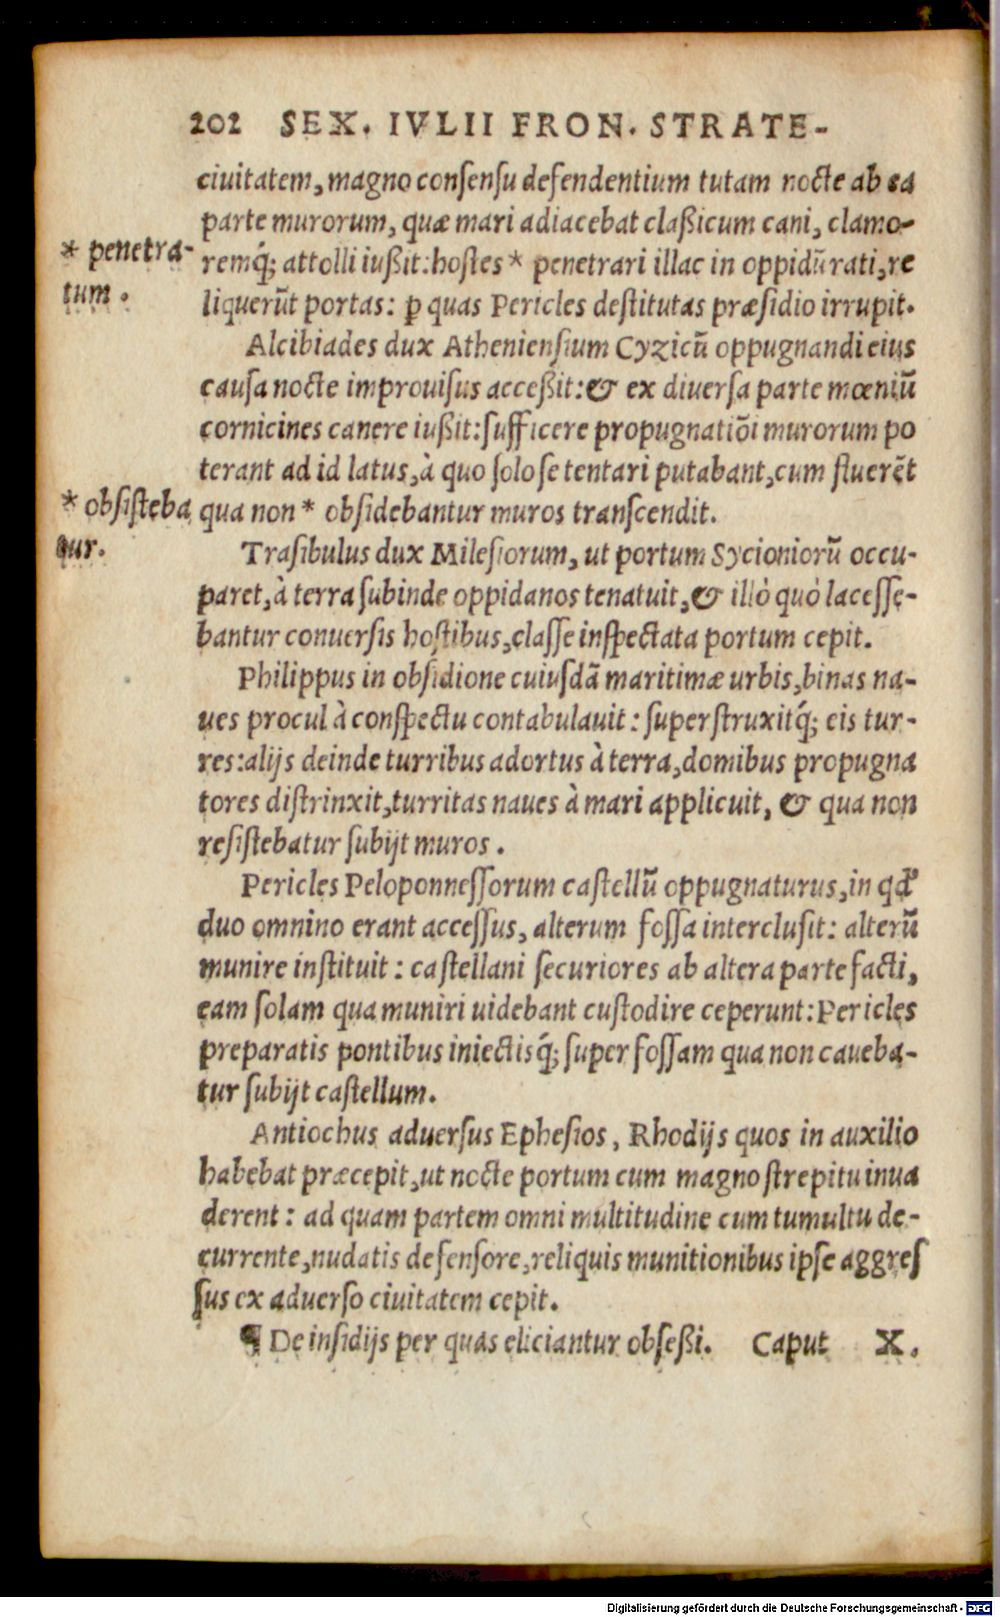 202 SEX. IVLII FRON. STRATE-
ciuitatem, magno consensu defendentium tutam nocte ab ea
parte murorum, quæ mari adiacebat claßicum cani, clamo-
* penetra-
tum.
remq́; attolli iußit: hostes * penetrari illac in oppidũ rati, re
liquerũt portas: ꝑ quas Pericles destitutas præsidio irrupit.
Alcibiades dux Atheniensium Cyzicũ oppugnandi eius
causa nocte improuisus acceßit: & ex diuersa parte mœniũ
cornicines canere iußit: sufficere propugnatiõi murorum po
terant ad id latus, à quo solo se tentari putabant, cum fluerẽt
* obsisteba
tur.
qua non * obsidebantur muros transcendit.
Trasibulus dux Milesiorum, ut portum Sycioniorũ occu-
paret, à terra subinde oppidanos tenatuit, & illò quò lacesse-
bantur conuersis hostibus, classe inspectata portum cepit.
Philippus in obsidione cuiusdã maritimæ urbis, binas na-
ues procul à conspectu contabulauit: superstruxitq́; eis tur-
res: alijs deinde turribus adortus à terra, domibus propugna
tores distrinxit, turritas naues à mari applicuit, & qua non
resistebatur subijt muros.
Pericles Peloponnessorum castellũ oppugnaturus, in qđ
duo omnino erant accessus, alterum fossa interclusit: alterũ
munire instituit: castellani securiores ab altera parte facti,
eam solam qua muniri uidebant custodire ceperunt: Pericles
preparatis pontibus iniectisq́; super fossam qua non caueba-
tur subijt castellum.
Antiochus aduersus Ephesios, Rhodijs quos in auxilio
habebat præcepit, ut nocte portum cum magno strepitu inua
derent: ad quam partem omni multitudine cum tumultu de-
currente, nudatis defensore, reliquis munitionibus ipse aggres
sus ex aduerso ciuitatem cepit.
¶ De insidijs per quas eliciantur obseßi. Caput X.
Digitalisierung gefördert durch die Deutsche Forschungsgemeinschaft - DFG